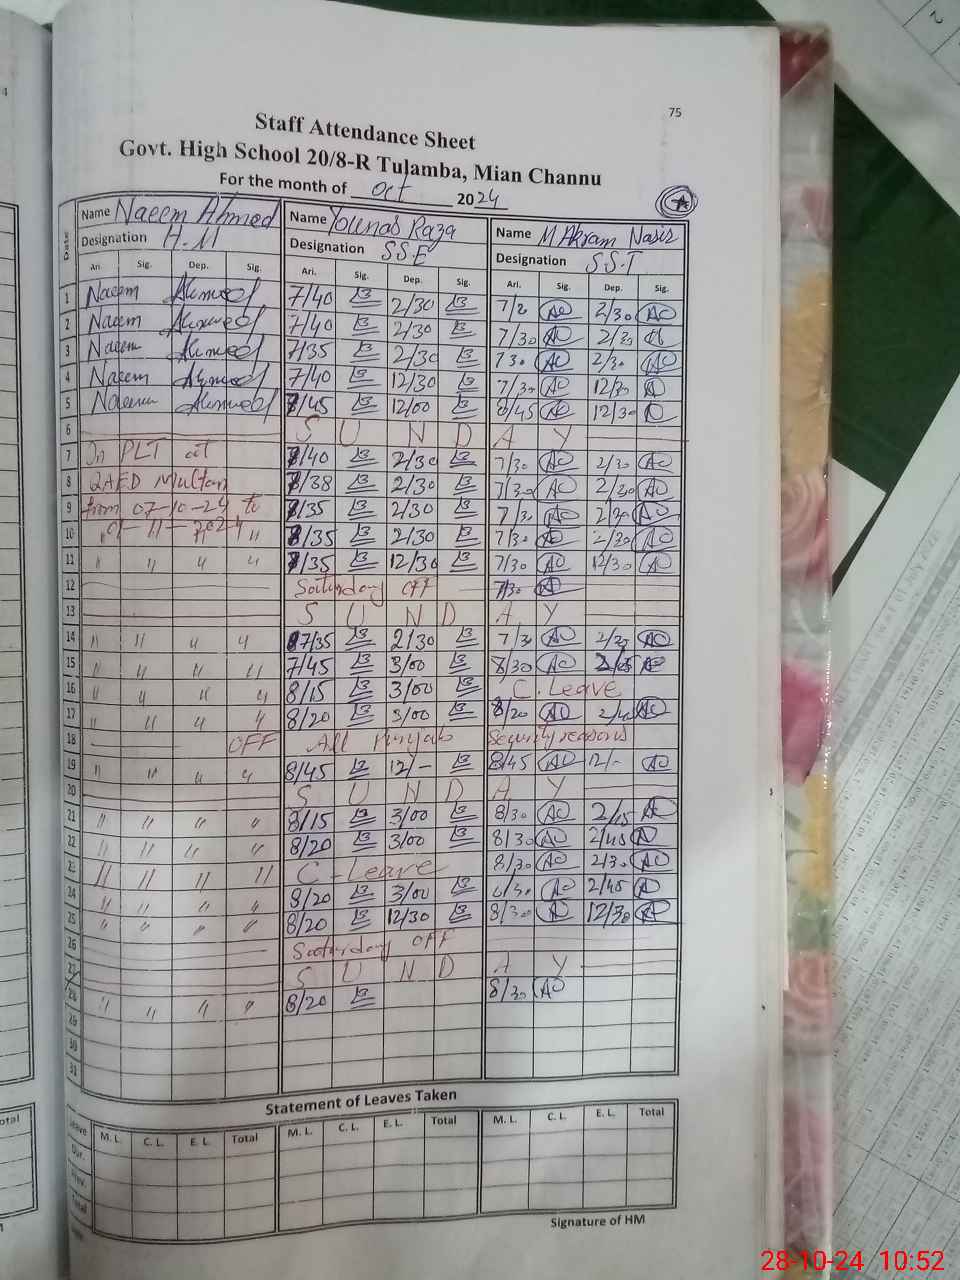 75
Staff Attendance Sheet
Govt. High School 20/8-R Tulamba, Mian Channu
For the month of Oct 2024
Date Name Naeem Ahmed Name Younas Raza Name M Akram Nasir
Designation H.M Designation S.S.E Designation S.S.T
Ari. Sig. Dep. Sig. Ari. Sig. Dep. Sig. Ari. Sig. Dep. Sig.
1 Naeem Ahmed 7/40 2/30 2/30
2 Naeem Ahmed 7/40 2/30 7/30 2/30
3 Naeem Ahmed 7/35 2/30 7 30 2/30
4 Naeem Ahmed 7/40 12/30 7/30 12/30
5 Naeem Ahmed 8/45 12/00 8/45 12/30
6 S U N D A Y
7 In PLT at 7/40 2/30 7/30 2/30
8 QAED Multan 7/38 2/30 7/30 2/30
9 from 07-10-24 to 7/35 2/30 7/30 2/30
10 01-11-2024 7/35 2/30 7/30 2/30
11 " " " " 7/35 12/30 7/30 12/30
12 Saturday OFF 7/30
13 S U N D A Y
14 " " " " 7/35 2/30 7/30 2/30
15 " " " " 7/45 3/00 8/30
16 " " " " 8/15 3/00 C. Leave
17 " " " " 8/20 3/00 8/20 2/40
18 OFF All Punjab Security reasons
19 " " " " 8/45 12/- 8/45 12/-
20 S U N D A Y
21 " " " " 8/15 3/00 8/30 2/45
22 " " " " 8/20 3/00 8/30 2/45
23 " " " " C - Leave 8/30 2/30
24 " " " " 8/20 3/00 8/30 2/45
25 " " " " 8/20 12/30 8/30 12/30
26 Saturday OFF
27 S U N D A Y
28 " " " " 8/20 8/30
29
30
31
Statement of Leaves Taken
Leave M. L. C. L. E. L. Total M. L. C. L. E. L. Total M. L. C. L. E. L. Total
Dur.
Prev.
Total
Signature of HM
28-10-24 10:52